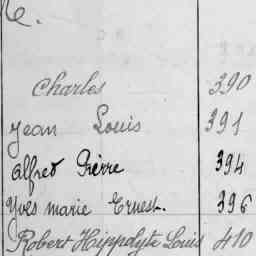 Charles 390
Jean Louis 391
Alfred Pierre 394
Yves marie Ernest. 396
Robert Hippolyte Louis 410